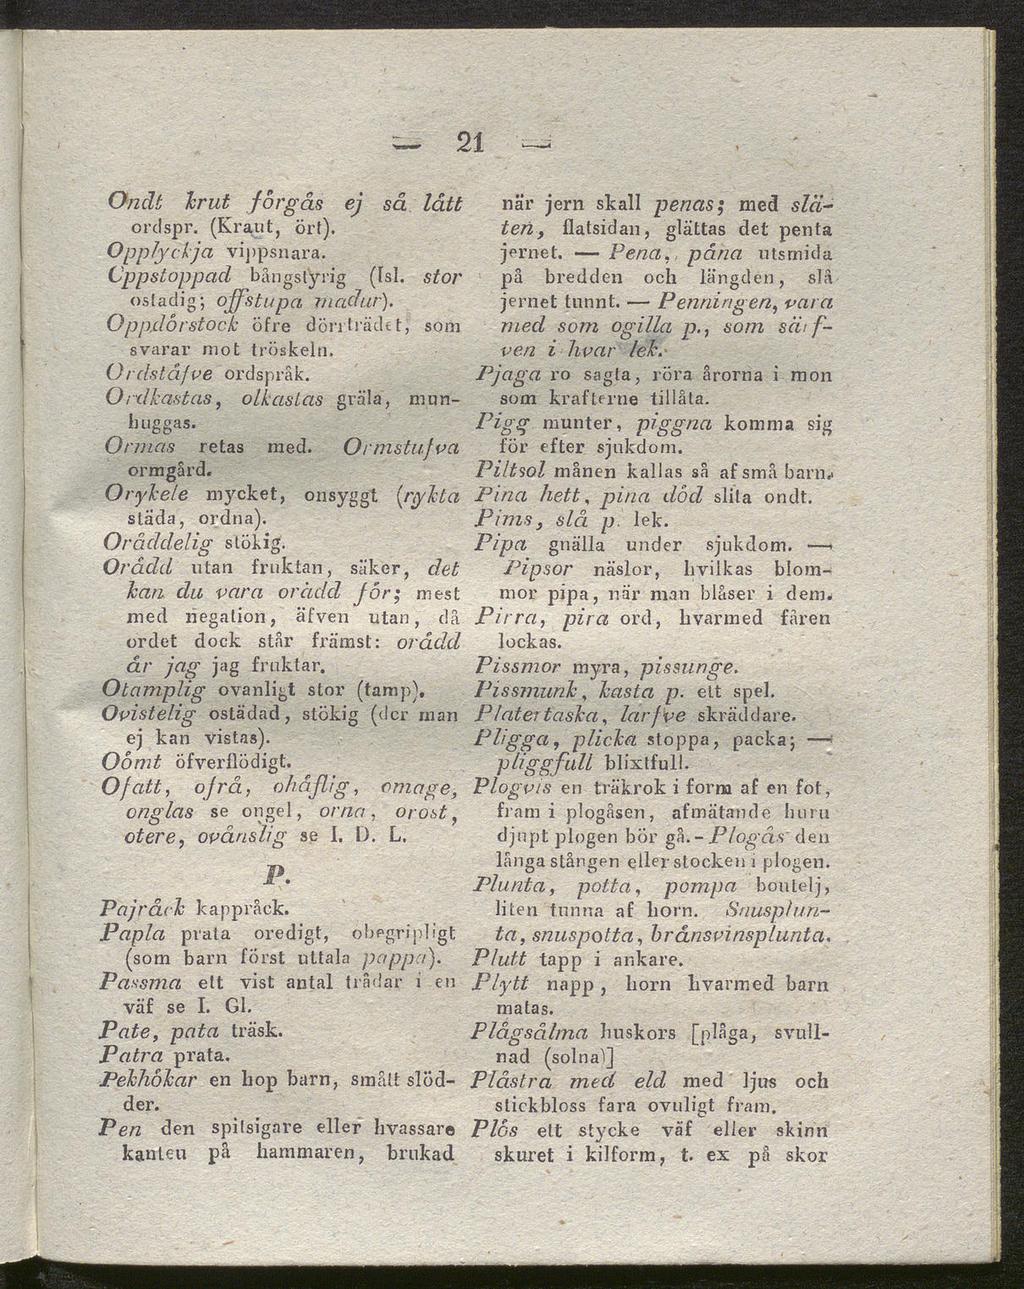 — 21 —
Ondt krut förgås ej så lått
ordspr. (Kraut, ört).
Opplyckja vippsnara.
Uppstoppad bångstyrig (Isl. stor
ostadig; offstupa madur).
Oppdörstock öfre dörrträdet, som
svarar mot tröskeln.
Ordståfve ordspråk.
Ordkastas, olkastas gräla, mun-
huggas.
Ormas retas med. Ormstufva
ormgård.
Orykele mycket, onsyggt (rykta
städa, ordna).
Oråddelig stökig.
Orådd utan fruktan, säker, det
kan du vara orådd för; mest
med negation, äfven utan, då
ordet dock står främst: orådd
år jag jag fruktar.
Otamplig ovanligt stor (tamp).
Ovistelig ostädad, stökig (der man
ej kan vistas).
Oômt öfverflödigt.
Ofatt, ofrå, ohåflig, omage,
onglas se ongel, orna, orost,
otere, ovånslig se I. D. L.
P.
Pajråck kappråck.
Papla prata oredigt, obegripligt
(som barn först uttala pappa).
Passma ett vist antal trådar i en
väf se I. Gl.
Pate, pata träsk.
Patra prata.
Pekhökar en hop barn, smått slöd-
der.
Pen den spitsigare eller hvassare
kanten på hammaren, brukad
när jern skall penas; med slä-
ten, flatsidan, glättas det penta
jernet. — Pena, påna utsmida
på bredden och längden, slå
jernet tunnt. — Penningen, vara
med som ogilla p., som särf-
ven i hvar lek.
Pjaga ro sagta, röra årorna i mon
som krafterne tillåta.
Pigg munter, piggna komma sig
för efter sjukdom.
Piltsol månen kallas så af små barn.
Pina hett, pina död slita ondt.
Pims, slå p. lek.
Pipa gnälla under sjukdom. —
Pipsor näslor, hvilkas blom-
mor pipa, när man blåser i dem.
Pirra, pira ord, hvarmed fåren
lockas.
Pissmor myra, pissunge.
Pissmunk, kasta p. ett spel.
Platertaska, larfve skräddare.
Pligga, plicka stoppa, packa; —
pliggfull blixtfull.
Plogvis en träkrok i form af en fot,
fram i plogåsen, afmätande huru
djupt plogen bör gå. - Plogås den
långa stången eller stocken i plogen.
Plunta, potta, pompa bouteilj,
liten tunna af horn. Snusplun-
ta, snuspotta, brånsvinsplunta.
Plutt tapp i ankare.
Plytt napp, horn hvarmed barn
matas.
Plågsålma huskors [plåga, svull-
nad (solna)]
Plåstra med eld med ljus och
stickbloss fara ovuligt fram.
Plôs ett stycke väf eller skinn
skuret i kilform, t. ex på skor